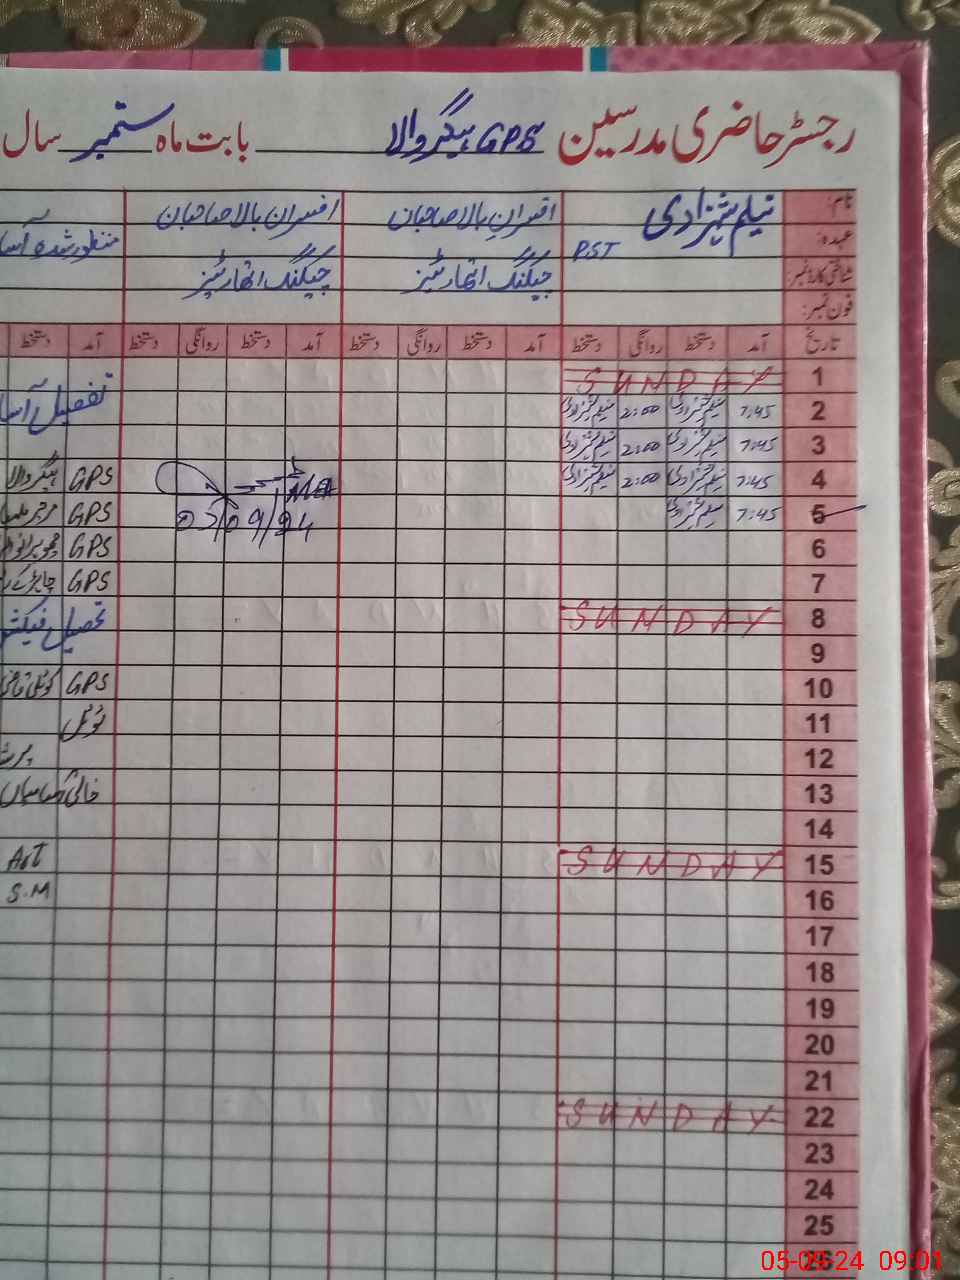 رجسٹر حاضری مدرسین GPS ہیگروالا بابت ماہ ستمبر سال
نام: نیلم شہزادی افسران بالا صاحبان افسران بالا صاحبان
عہدہ: PST منظور شدہ
شناختی کارڈ نمبر: چیکنگ اتھارٹیز چیکنگ اتھارٹیز
فون نمبر:
تاریخ آمد دستخط روانگی دستخط آمد دستخط روانگی دستخط آمد دستخط روانگی دستخط آمد دستخط
1 SUNDAY
2 7:45 نیلم شہزادی 2:00 نیلم شہزادی تفصیل
3 7:45 نیلم شہزادی 2:00 نیلم شہزادی
4 7:45 نیلم شہزادی 2:00 نیلم شہزادی MEA GPS ہیگروالا
5 7:45 نیلم شہزادی 03/09/24 GPS
6 GPS
7 GPS
8 SUNDAY تحصیل
9
10 GPS
11 ٹوٹل
12
13 خالی
14
15 SUNDAY
16 S.M
17
18
19
20
21
22 SUNDAY
23
24
25
26
05-09-24 09:01